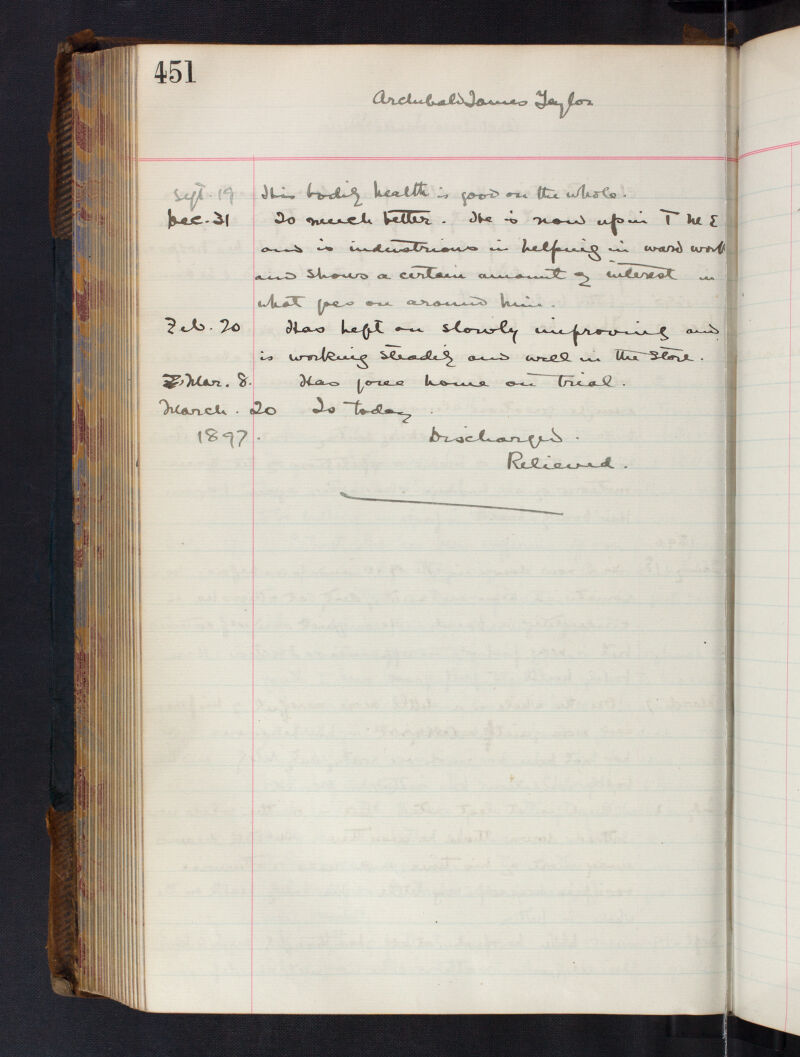 451
Archibald James Taylor
Sept. 19 His bodily health is good on the whole.
Dec. 31 Is much better. He is now up in T M E
and is industrious in helping in ward work
and shows a certain amount of interest in
what goes on around him.
Feb. 20 Has kept on slowly improving and
is working steadily and well in the store.
Mar. 8. Has gone home on trial.
March. 20 Is today.
1897. Discharged.
Relieved.